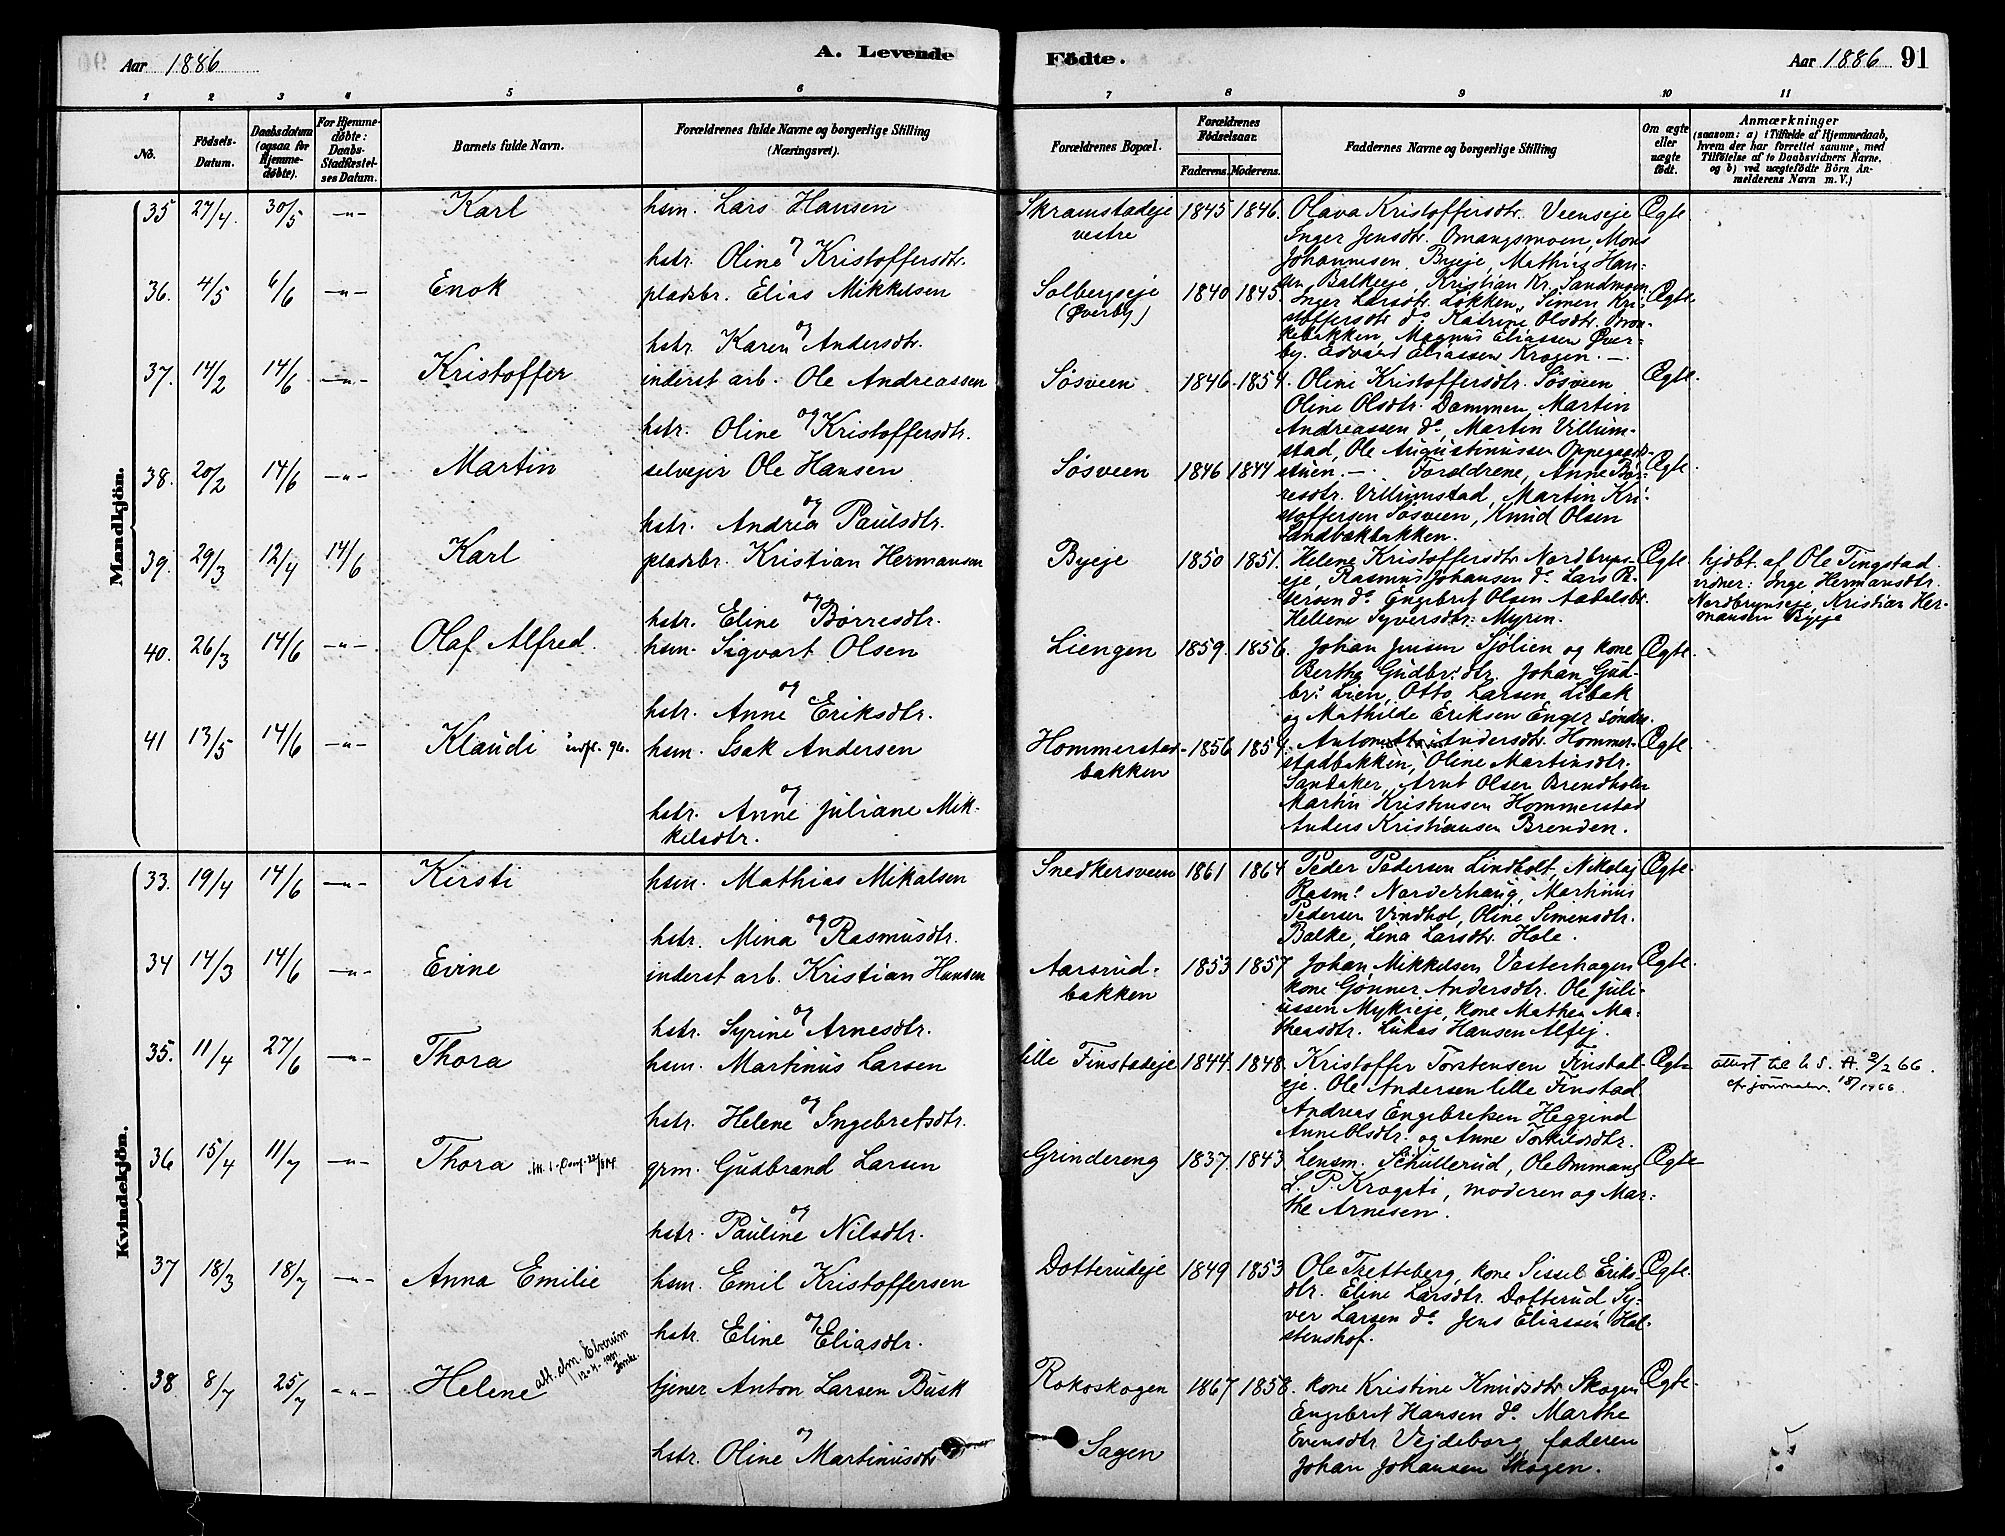 Aar 1886
A. Levende
Födte.
Aar 1886
91
1 2 3 4 5 6 7 8 9 10 11
No.
Fødsels-
Datum.
Daabsdatum
(ogsaa for
Hjemme-
døbte).
For Hjemme-
døbte:
Daabs-
Stadfæstel-
ses Datum.
Barnets fulde Navn.
Forældrenes fulde Navne og borgerlige Stilling
(Næringsvei).
Forældrenes Bopæl.
Forældrenes
Fødselsaar.
Faderens. Moderens.
Faddernes Navne og borgerlige Stilling
Om ægte
eller
uægte
født.
Anmærkninger
(saasom: a) i Tilfælde af Hjemmedaab,
hvem der har forrettet samme, med
Tilføielse af to Daabsvidners Navne,
og b) ved uægtefødte Börn An-
melderens Navn m. V.)
Mandkjön.
35 27/4. 30/5 -"- Karl hsm. Lars Hansen
og
hstr. Oline Kristoffersdtr.
Skramstadeje
vestre
1845 1846. Olava Kristoffersdtr. Veenseje Ægte
Inger Jensdtr. Omangsmoen, Mons
Johannesen, Byeje, Mathias Han-
sen, Balkeeje, Kristian Kr. Sandmoen
36. 4/5 6/6 -"- Enok pladsbr. Elias Mikkelsen
og
hstr. Karen Andersdtr.
Solbergseje
(Øverby)
1840 1845. Inger Larsdtr. Løkken, Simen Kri- Ægte
stoffersdtr do Katrine Olsdtr.
kebakken, Magnus Eliassen Øver-
by. Edvard Eliassen Krogen. -
37. 14/2 14/6 -"- Kristoffer inderst arb. Ole Andreassen
og
hstr. Oline Kristoffersdtr.
Søsveen 1846. 1854. Oline Kristoffersdtr. Søsveen Ægte.
Oline Olsdtr. Dammen, Martin
Andreassen do, Martin Villum-
stad, Ole Augustinussen Oppegaard-
stuen. -
38. 20/2 14/6 -"- Martin selvejer Ole Hansen
og
hstr. Andrea Paulsdtr.
Søsveen 1846 1844 Forældrene, Anne Bør- Ægte.
resdtr. Villumstad, Martin Kri-
stoffersen Søsveen, Knud Olsen
Sandbakbakken.
39. 29/3 12/4 14/6 Karl pladsbr. Kristian Hermansen
og
hstr. Eline Børresdtr.
Byeje 1850 1851. Helene Kristoffersdtr Nordbryns- Ægte.
eje, Rasmus Johansen do. Lars Pe-
tersen do. Engebret Olsen Aadalsbr.
Hellene Syversdtr: Myren.
hjdbt. af Ole Tingstad.
vidner: Inge Hermansdtr.
Nordbrynseje, Kristian Her-
mansen Byeje
40. 26/3 14/6 -"- Olaf Alfred. hsm. Sigvart Olsen
og
hstr. Anne Eriksdtr.
Liengen 1859. 1856. Johan Jensen Sjølien og kone Ægte.
Berthe Gudbr: dtr. Johan Gud-
br: Lien, Otto Larsen Libak
og Mathilde Eriksen Enger søndre.
41 13/5 14/6 -"- Klaudi hsm. Isak Andersen
og
hstr. Anne Juliane Mik-
kelsdtr.
Hommerstad-
bakken
1856 1854. Andersdtr. Hommer- Ægte.
stadbakken, Oline Martinsdtr.
Sandaker, Arnt Olsen Brendholen
Martin Kristiansen Hommerstad
Anders Kristiansen Brenden.
Kvindekjön.
33. 19/4 14/6 -"- Kirsti hsm. Mathias Mikalsen
og
hstr. Mina Rasmusdtr.
Snedkersveen 1861 1864 Peder Pedersen Lindholt, Nikolaj Ægte.
Rasm: Norderhaug, Martinus
Pedersen Vindhol, Oline Simensdtr.
Balke, Lina Larsdtr. Hole.
34 14/3 14/6 -"- Evine inderst arb. Kristian Hansen
og
hstr. Syrine Arnesdtr.
Aarsrud-
bakken
1853 1857 Johan Mikkelsen Vesterhagen Ægte.
kone Gønner Andersdtr. Ole Juli-
ussen Mykleeje, kone Mathea Ma-
theasdtr. Lukas Hansen Alfej.
35. 11/4 27/6 -"- Thora hsm. Martinus Larsen
og
hstr. Helene Ingebretsdtr.
lille Finstadeje 1844. 1848. Kristoffer Torstensen Finstad- Ægte
eje. Ole Andersen lille Finstad
Andreas Engebretsen Heggend
Anne Olsdtr. og Anne Torkilsdtr.
attest til 2/2 66.
cfr journalnr. 18/1966.
36 15/4 11/7 -"- Thora grm. Gudbrand Larsen
og
hstr. Pauline Nilsdtr.
Grindereng 1837. 1843. Lensm. Schullerud, Ole Ommang Ægte
L. P. Krogsti, moderen og Mar-
the Arnesen.
37 18/3 18/7 -"- Anna Emilie hsm. Emil Kristoffersen
og
hstr. Eline Eliasdtr.
Dotterudeje 1849 1853 Ole Tretteberg, kone Sissel Eriks- Ægte.
dtr. Eline Larsdtr. Dotterud Sy-
ver Larsen do Jens Eliassen Hol-
stenshof.
38 8/7 25/7 -"- Helene
att. dm. Elverum
tjener Anton Larsen Busk
og
hstr. Oline Martinusdtr
Rokoskogen
Sagen
1867 1858. kone Kristine Knudsdtr Skogen Ægte.
Engebret Hansen do. Marthe
Evensdtr Vejdeborg, faderen
Johan Johansen Skogen.